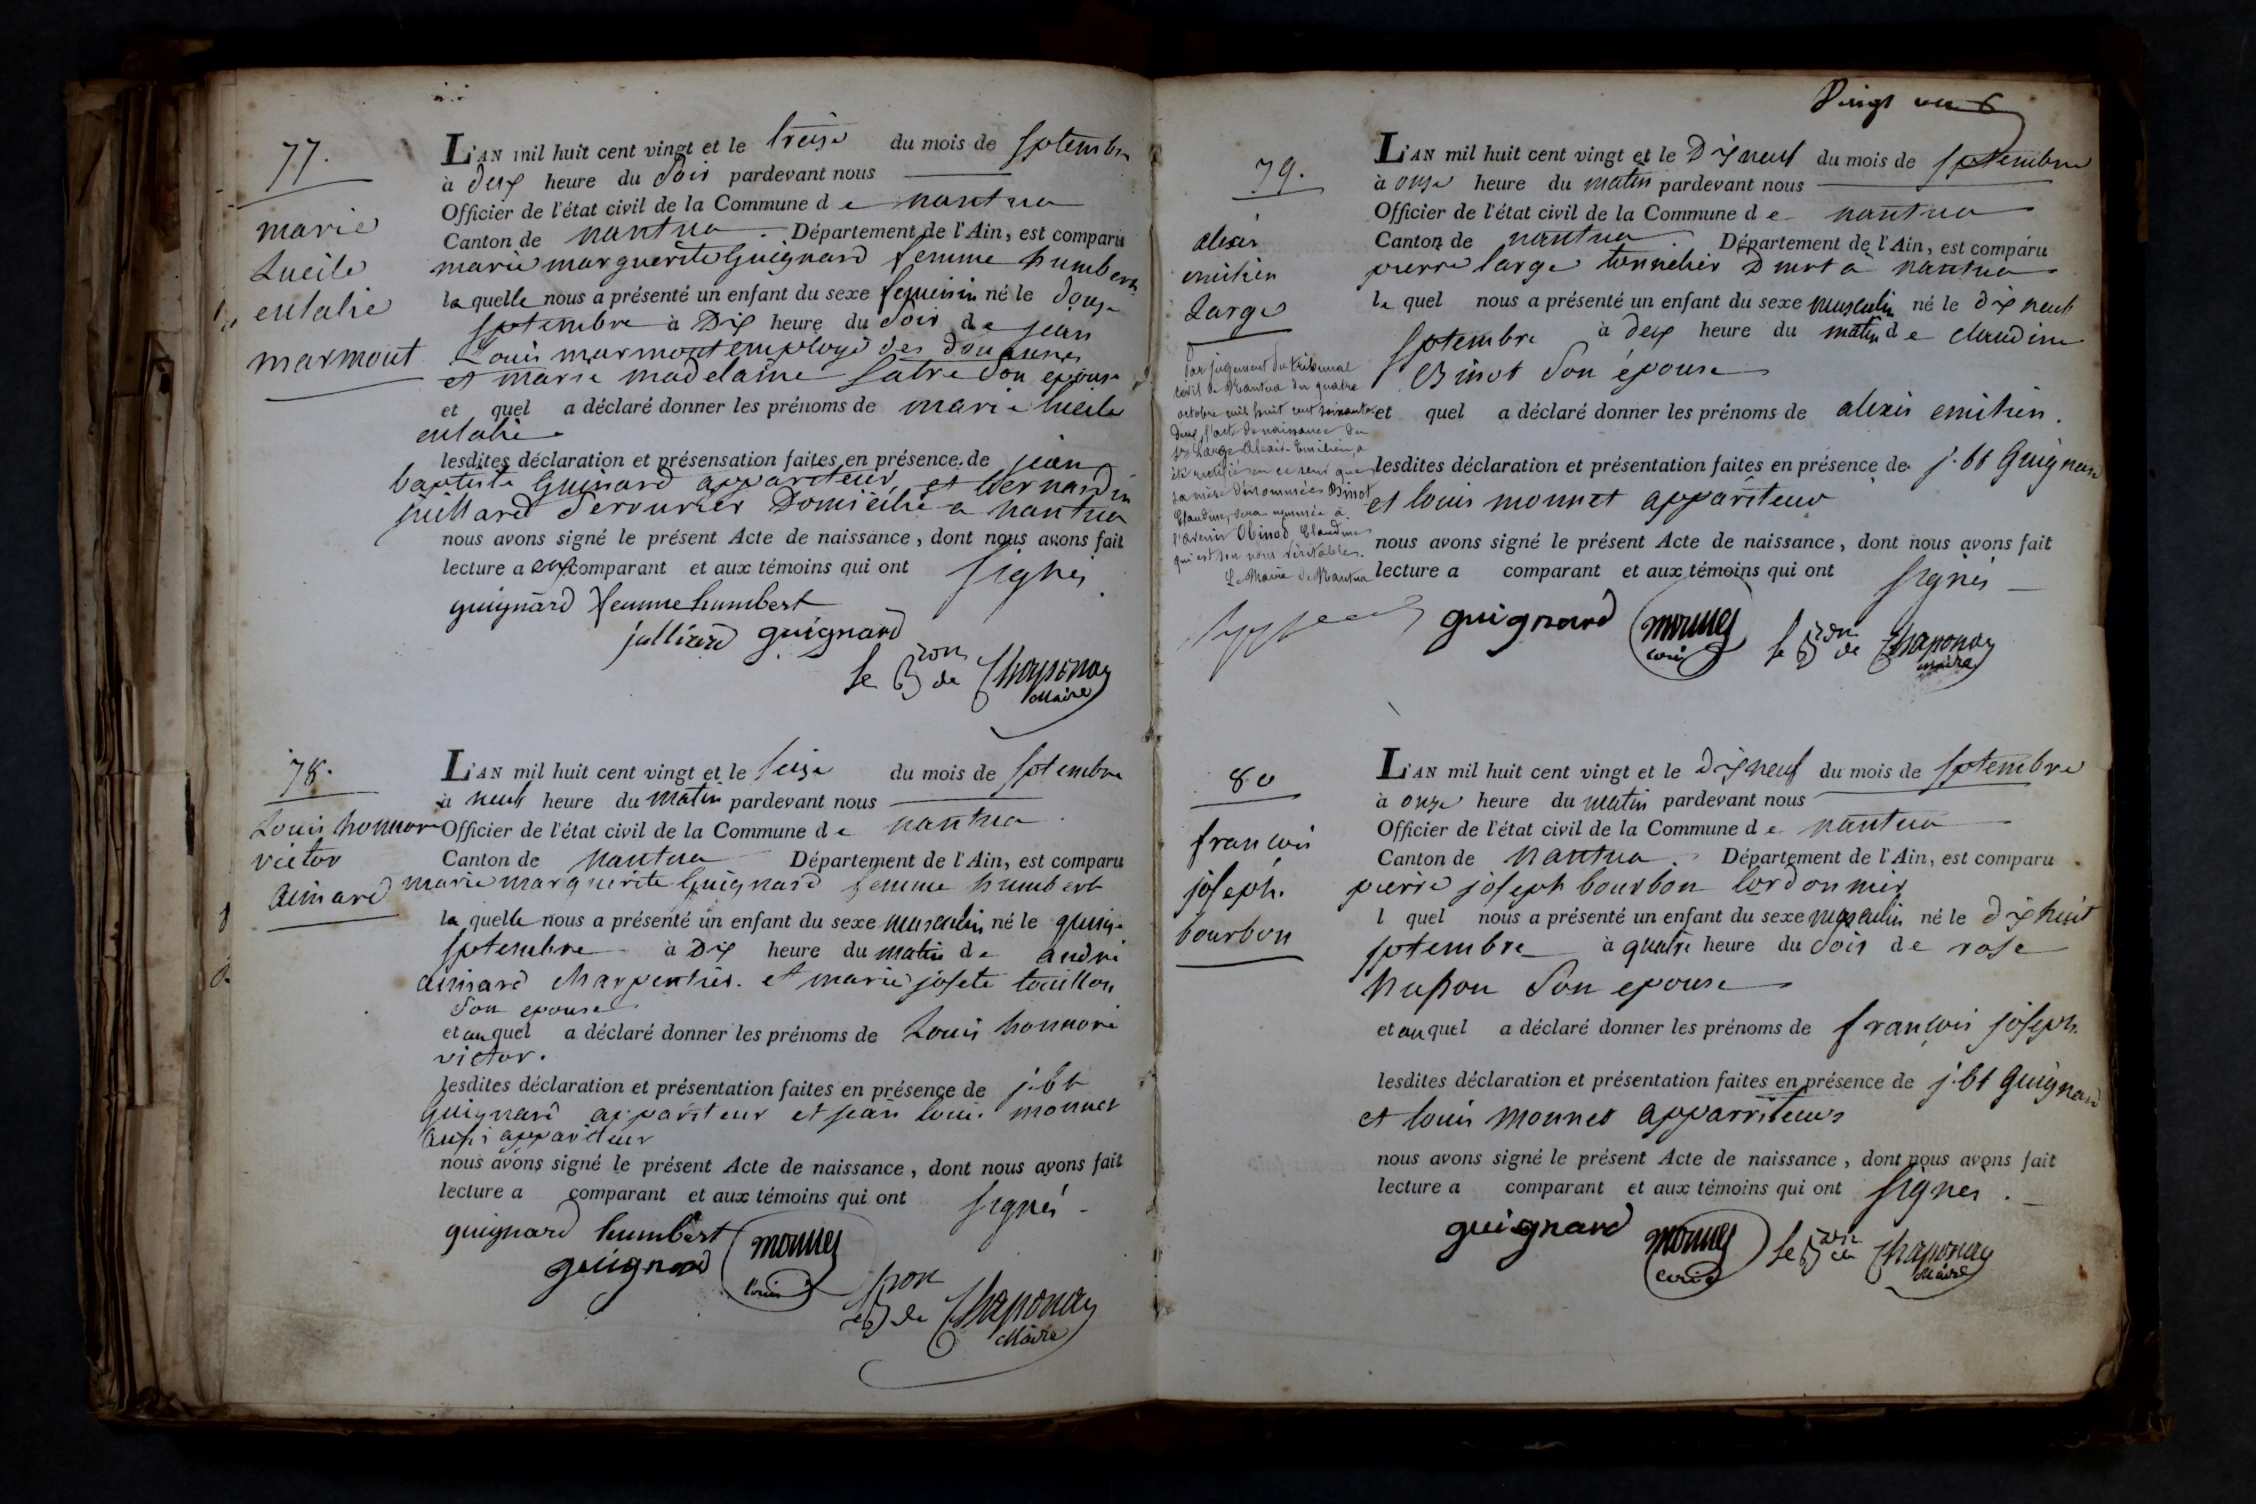 77.
marie
Lucile
eulalie
marmont
L'AN mil huit cent vingt et le treize du mois de septembre
à deux heure du soir pardevant nous
Officier de l'état civil de la Commune de nantua
Canton de nantua. Département de l'Ain, est comparu
marie marguerite Guignard femme humbert
la quelle nous a présenté un enfant du sexe feminin né le douze
septembre à Dix heure du soir de jean
Louis marmont employé des douannes
et marie madelaine son epouse
et quel a déclaré donner les prénoms de marie lucile
eulalie
lesdites déclaration et présensation faites en présence de jean
baptiste Guinard appariteur et bernardin
juillard serrurier Domicilié a nantua
nous avons signé le présent Acte de naissance, dont nous avons fait
lecture a comparant et aux témoins qui ont signés
guignard femme humbert
julliard guignard
le Bron de Chaponay
Maire
78.
Louis honnore
victor
aimard
L'AN mil huit cent vingt et le seize du mois de septembre
à neuf heure du matin pardevant nous
Officier de l'état civil de la Commune de nantua
Canton de nantua Département de l'Ain, est comparu
marie marguerite Guignard femme humbert
la quelle nous a présenté un enfant du sexe masculin né le quinze
septembre à Dix heure du matin de andré
aimard charpentier. et marie josete touillon
son epouse
et au quel a déclaré donner les prénoms de Louis honnoré
victor.
lesdites déclaration et présentation faites en présence de j. bt
guignard appariteur et jean louis monnet
aussi appariteur
nous avons signé le présent Acte de naissance, dont nous avons fait
lecture a comparant et aux témoins qui ont signés
guignard humbert
guignard monnet
louis
le Bron de Chaponay
Maire
Vingt un
79.
alexis
emilien
Large
Par jugement du tribunal
civil de Nantua du quatre
octobre mil huit cent soixante
deux, l'acte de naissance du
sr Large Alexis Emilien, a
été rectifié en ce sens que
sa mère dénommée Binot
Claudine, sera nommée à
l'avenir Obinod Claudine
qui est son nom véritable.
Le Maire de Nantua
L'AN mil huit cent vingt et le Dixneuf du mois de septembre
à onze heure du matin pardevant nous
Officier de l'état civil de la Commune de nantua
Canton de nantua. Département de l'Ain, est comparu
pierre large tonnelier Dmrt à nantua
le quel nous a présenté un enfant du sexe masculin né le dix neuf
septembre à deux heure du matin de claudine
Binot son épouse
et quel a déclaré donner les prénoms de alexis emilien.
lesdites déclaration et présentation faites en présence de j. bt Guignard
et louis monnet appariteur
nous avons signé le présent Acte de naissance, dont nous avons fait
lecture a comparant et aux témoins qui ont signés
guignard monnet
louis
le Bron de Chaponay
maire
80
francois
joseph.
bourbon
L'AN mil huit cent vingt et le Dixneuf du mois de septembre
à onze heure du matin pardevant nous
Officier de l'état civil de la Commune de nantua
Canton de nantua. Département de l'Ain, est comparu
pierre joseph bourbon cordonnier
l quel nous a présenté un enfant du sexe masculin né le dix huit
septembre à quatre heure du soir de rose
son epouse
et au quel a déclaré donner les prénoms de françois joseph.
lesdites déclaration et présentation faites en présence de j. bt Guignard
et louis monnet apparriteurs
nous avons signé le présent Acte de naissance, dont nous avons fait
lecture a comparant et aux témoins qui ont signés.
guignard monnet
louis
le Bron de Chaponay
Maire